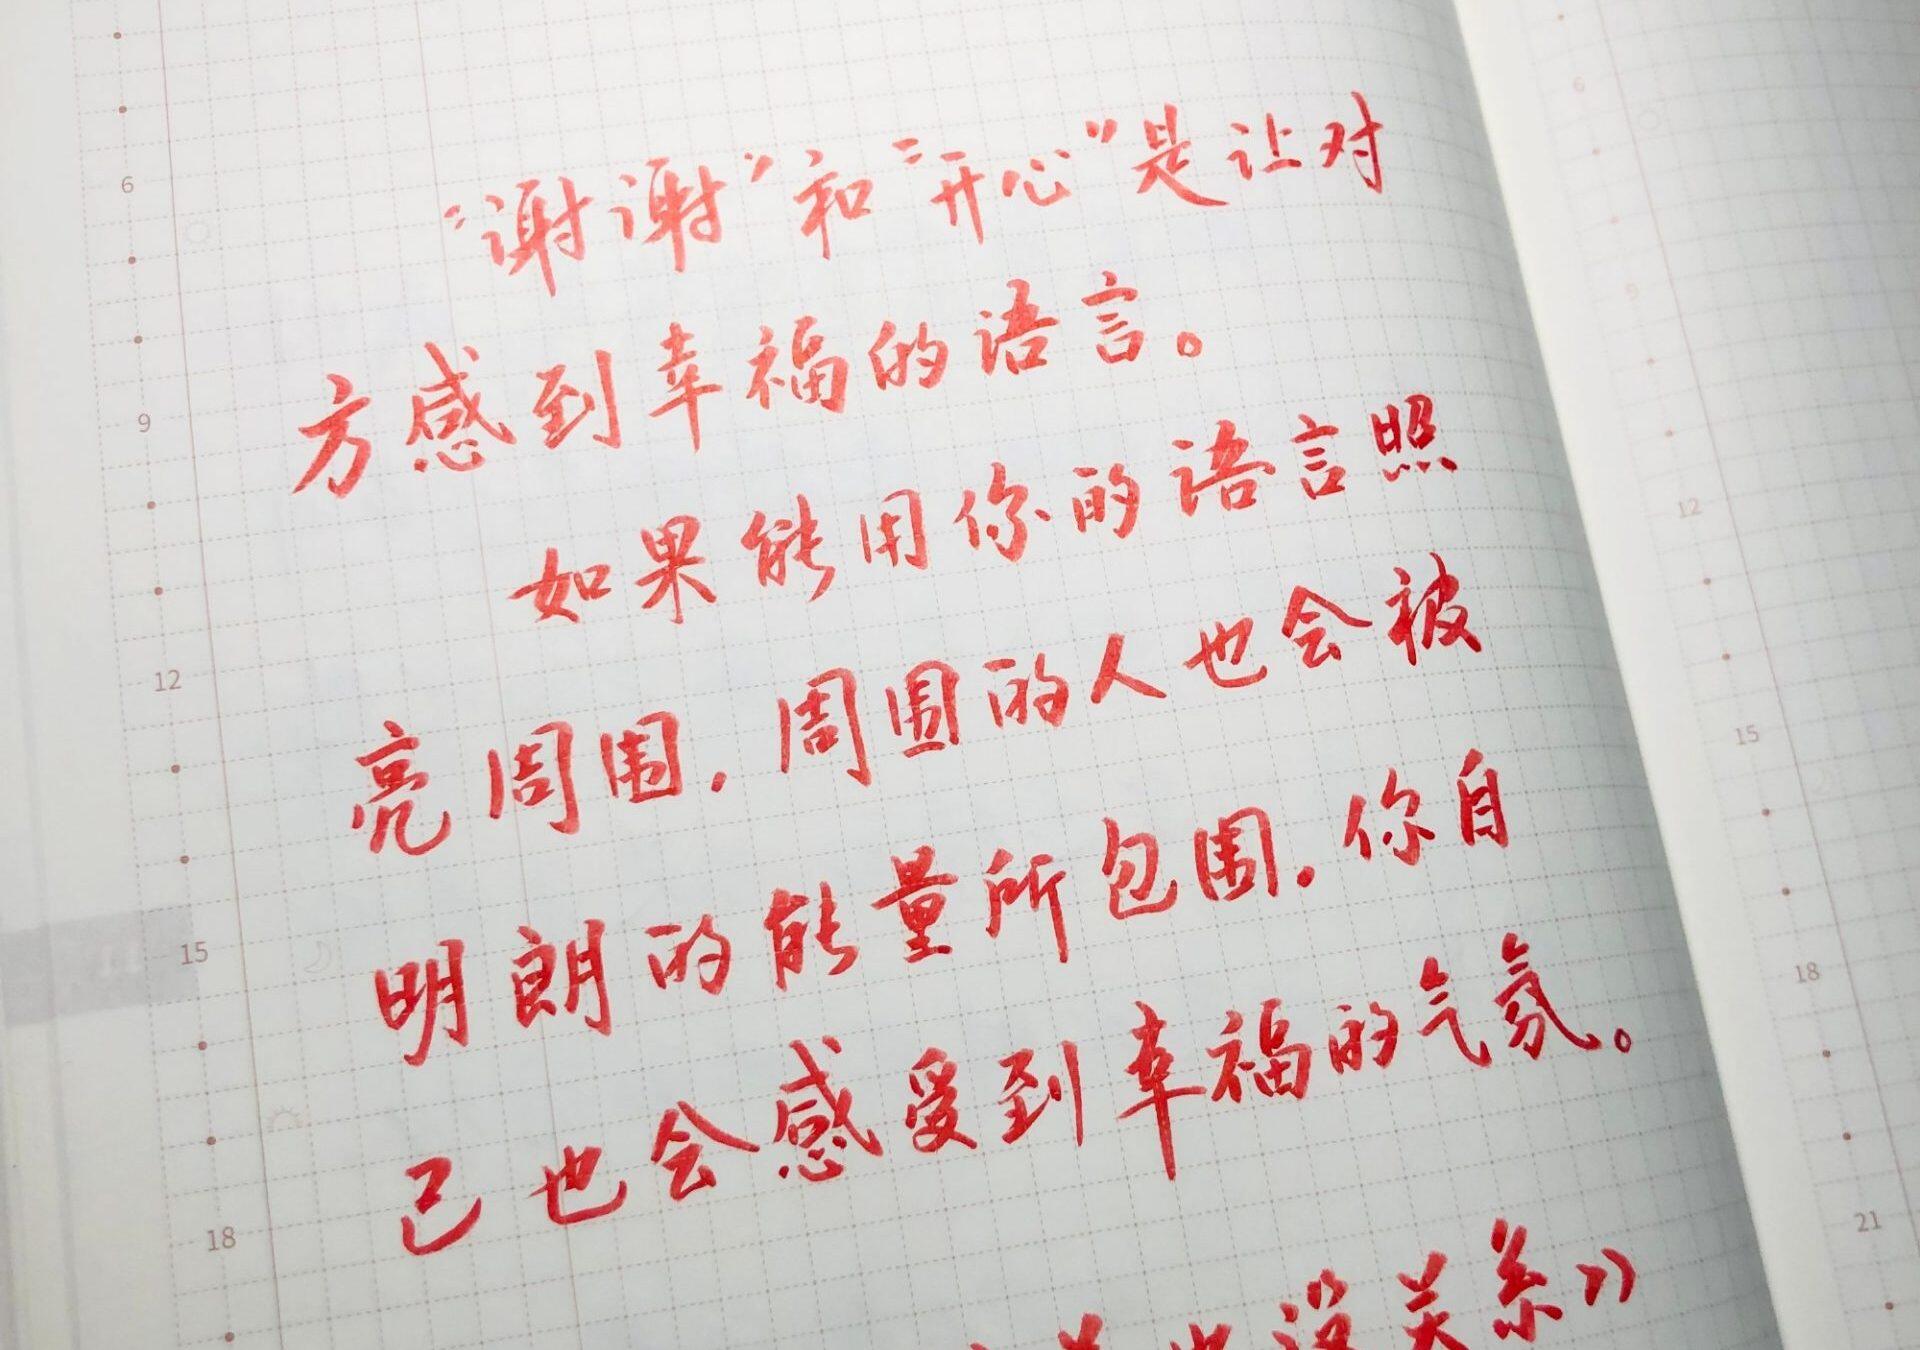 “谢谢”和“开心”是让对
方感到幸福的语言。
如果能用你的语言照
亮周围，周围的人也会被
明朗的能量所包围，你自
己也会感受到幸福的气氛。
也没关系》
6
9
12
15
18
11
6
9
12
15
18
21